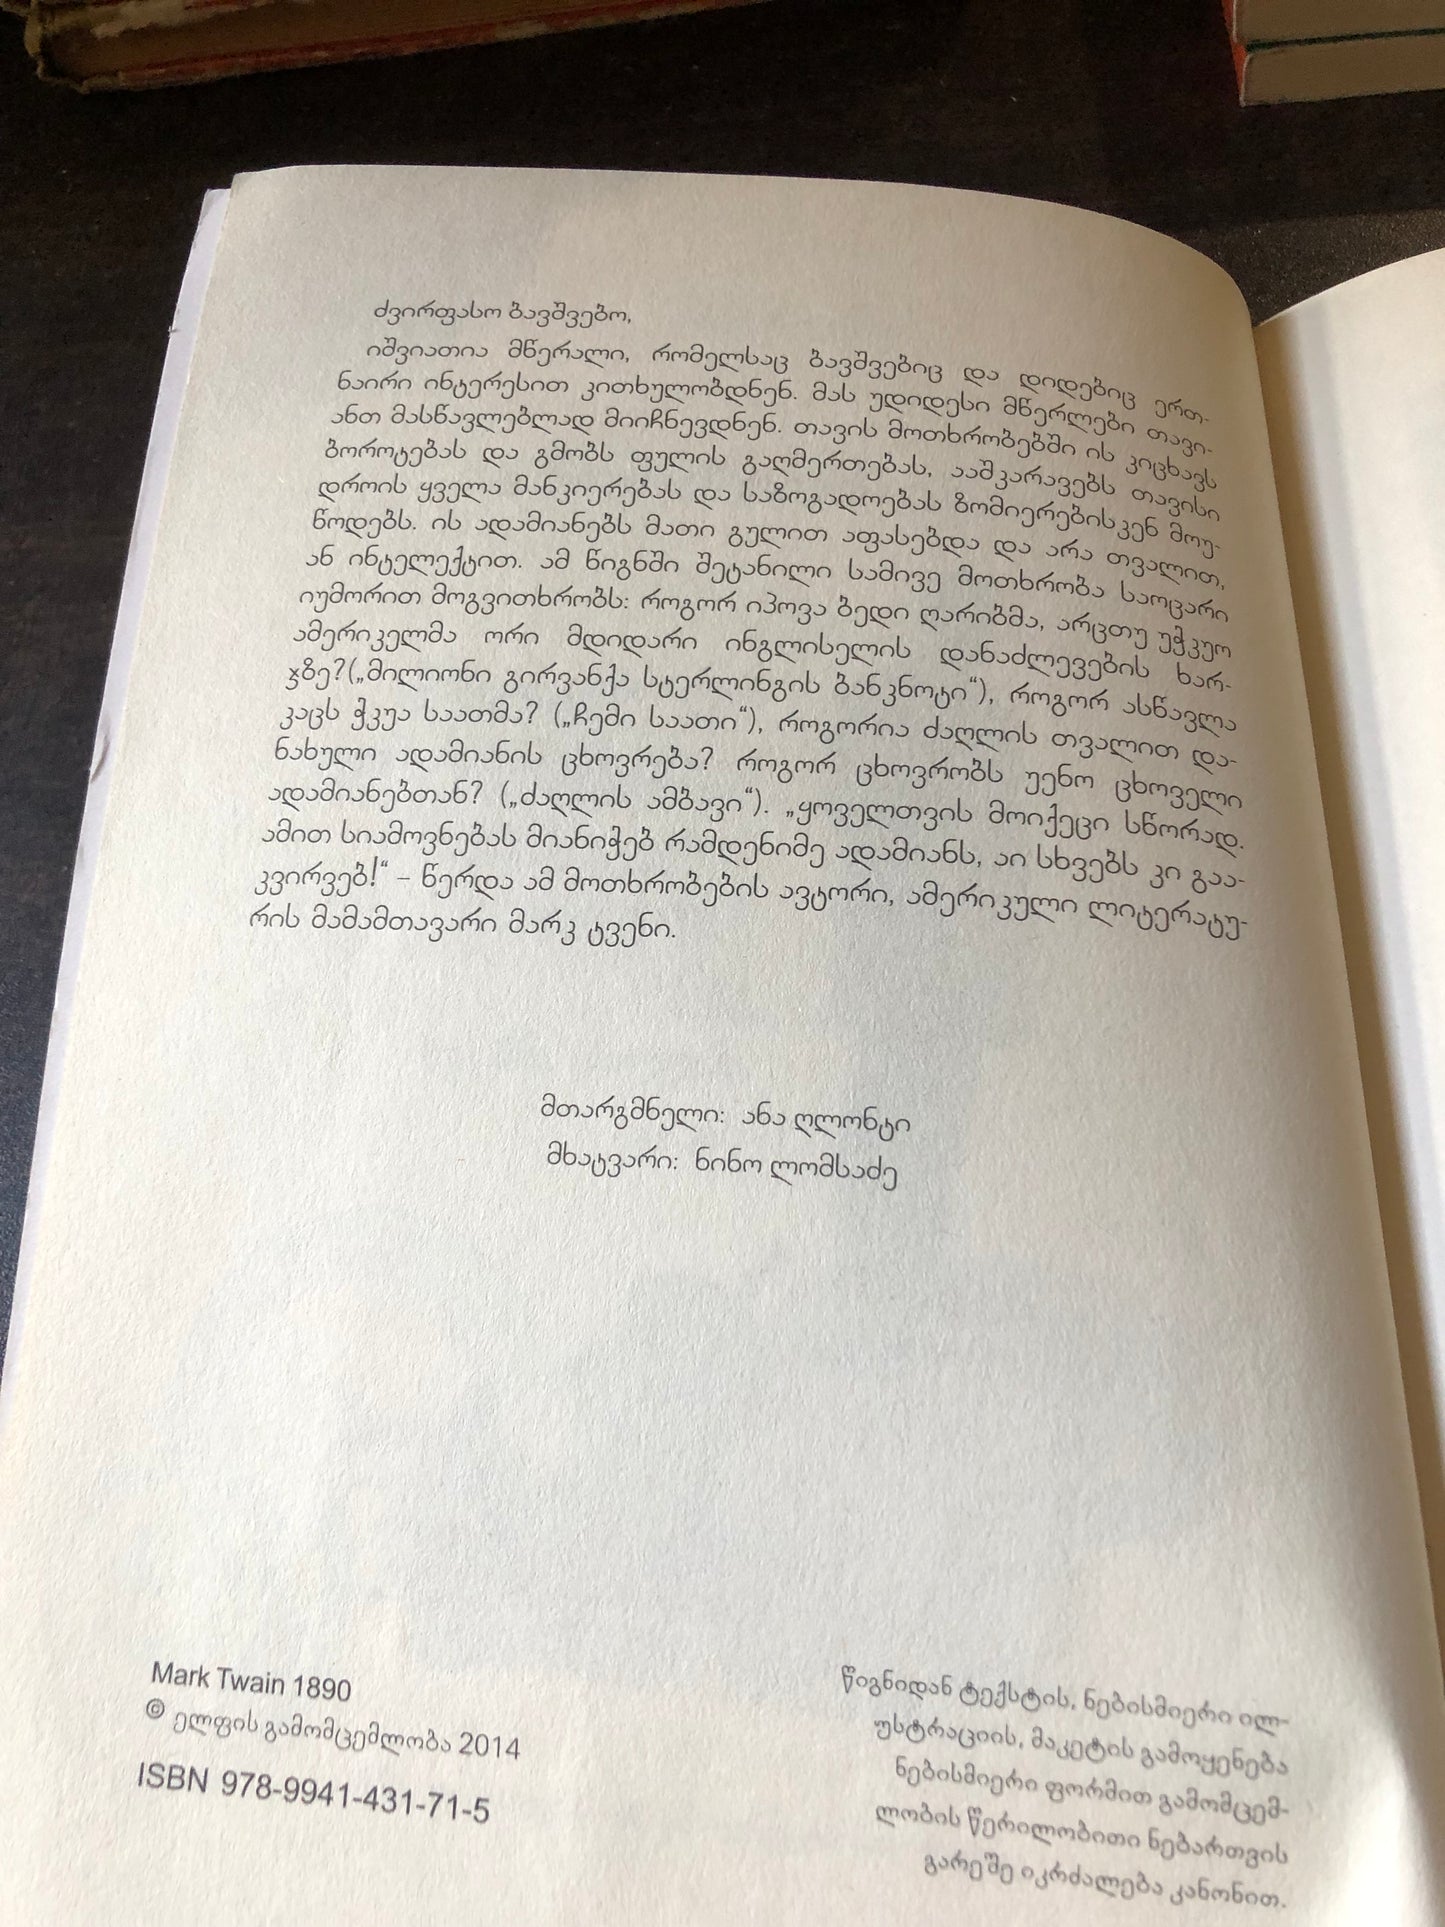 ძვირფასო ბავშვებო,
იშვიათია მწერალი, რომელსაც ბავშვებიც და დიდებიც ერთ-
ნაირი ინტერესით კითხულობდნენ. მას უდიდესი მწერლები თავი-
ანთ მასწავლებლად მიიჩნევდნენ. თავის მოთხრობებში ის კიცხავს
ბოროტებას და გმობს ფულის გაღმერთებას, ააშკარავებს თავისი
დროის ყველა მანკიერებას და საზოგადოებას ზომიერებისკენ მოუ-
წოდებს. ის ადამიანებს მათი გულით აფასებდა და არა თვალით,
ან ინტელექტით. ამ წიგნში შეტანილი სამივე მოთხრობა საოცარი
იუმორით მოგვითხრობს: როგორ იპოვა ბედი ღარიბმა, არცთუ უჭკუო
ამერიკელმა ორი მდიდარი ინგლისელის დანაძლევების ხარ-
ჯზე?(„მილიონი გირვანქა სტერლინგის ბანკნოტი“), როგორ ასწავლა
კაცს ჭკუა საათმა? („ჩემი საათი“), როგორია ძაღლის თვალით და-
ნახული ადამიანის ცხოვრება? როგორ ცხოვრობს უენო ცხოველი
ადამიანებთან? („ძაღლის ამბავი“). „ყოველთვის მოიქეცი სწორად.
ამით სიამოვნებას მიანიჭებ რამდენიმე ადამიანს, აი სხვებს კი გაა-
კვირვებ!“ – წერდა ამ მოთხრობების ავტორი, ამერიკული ლიტერატუ-
რის მამამთავარი მარკ ტვენი.
მთარგმნელი: ანა ღლონტი
მხატვარი: ნინო ლომსაძე
Mark Twain 1890
© ელფის გამომცემლობა 2014
ISBN 978-9941-431-71-5
წიგნიდან ტექსტის, ნებისმიერი ილ-
უსტრაციის, მაკეტის გამოყენება
ნებისმიერი ფორმით გამომცემ-
ლობის წერილობითი ნებართვის
გარეშე იკრძალება კანონით.